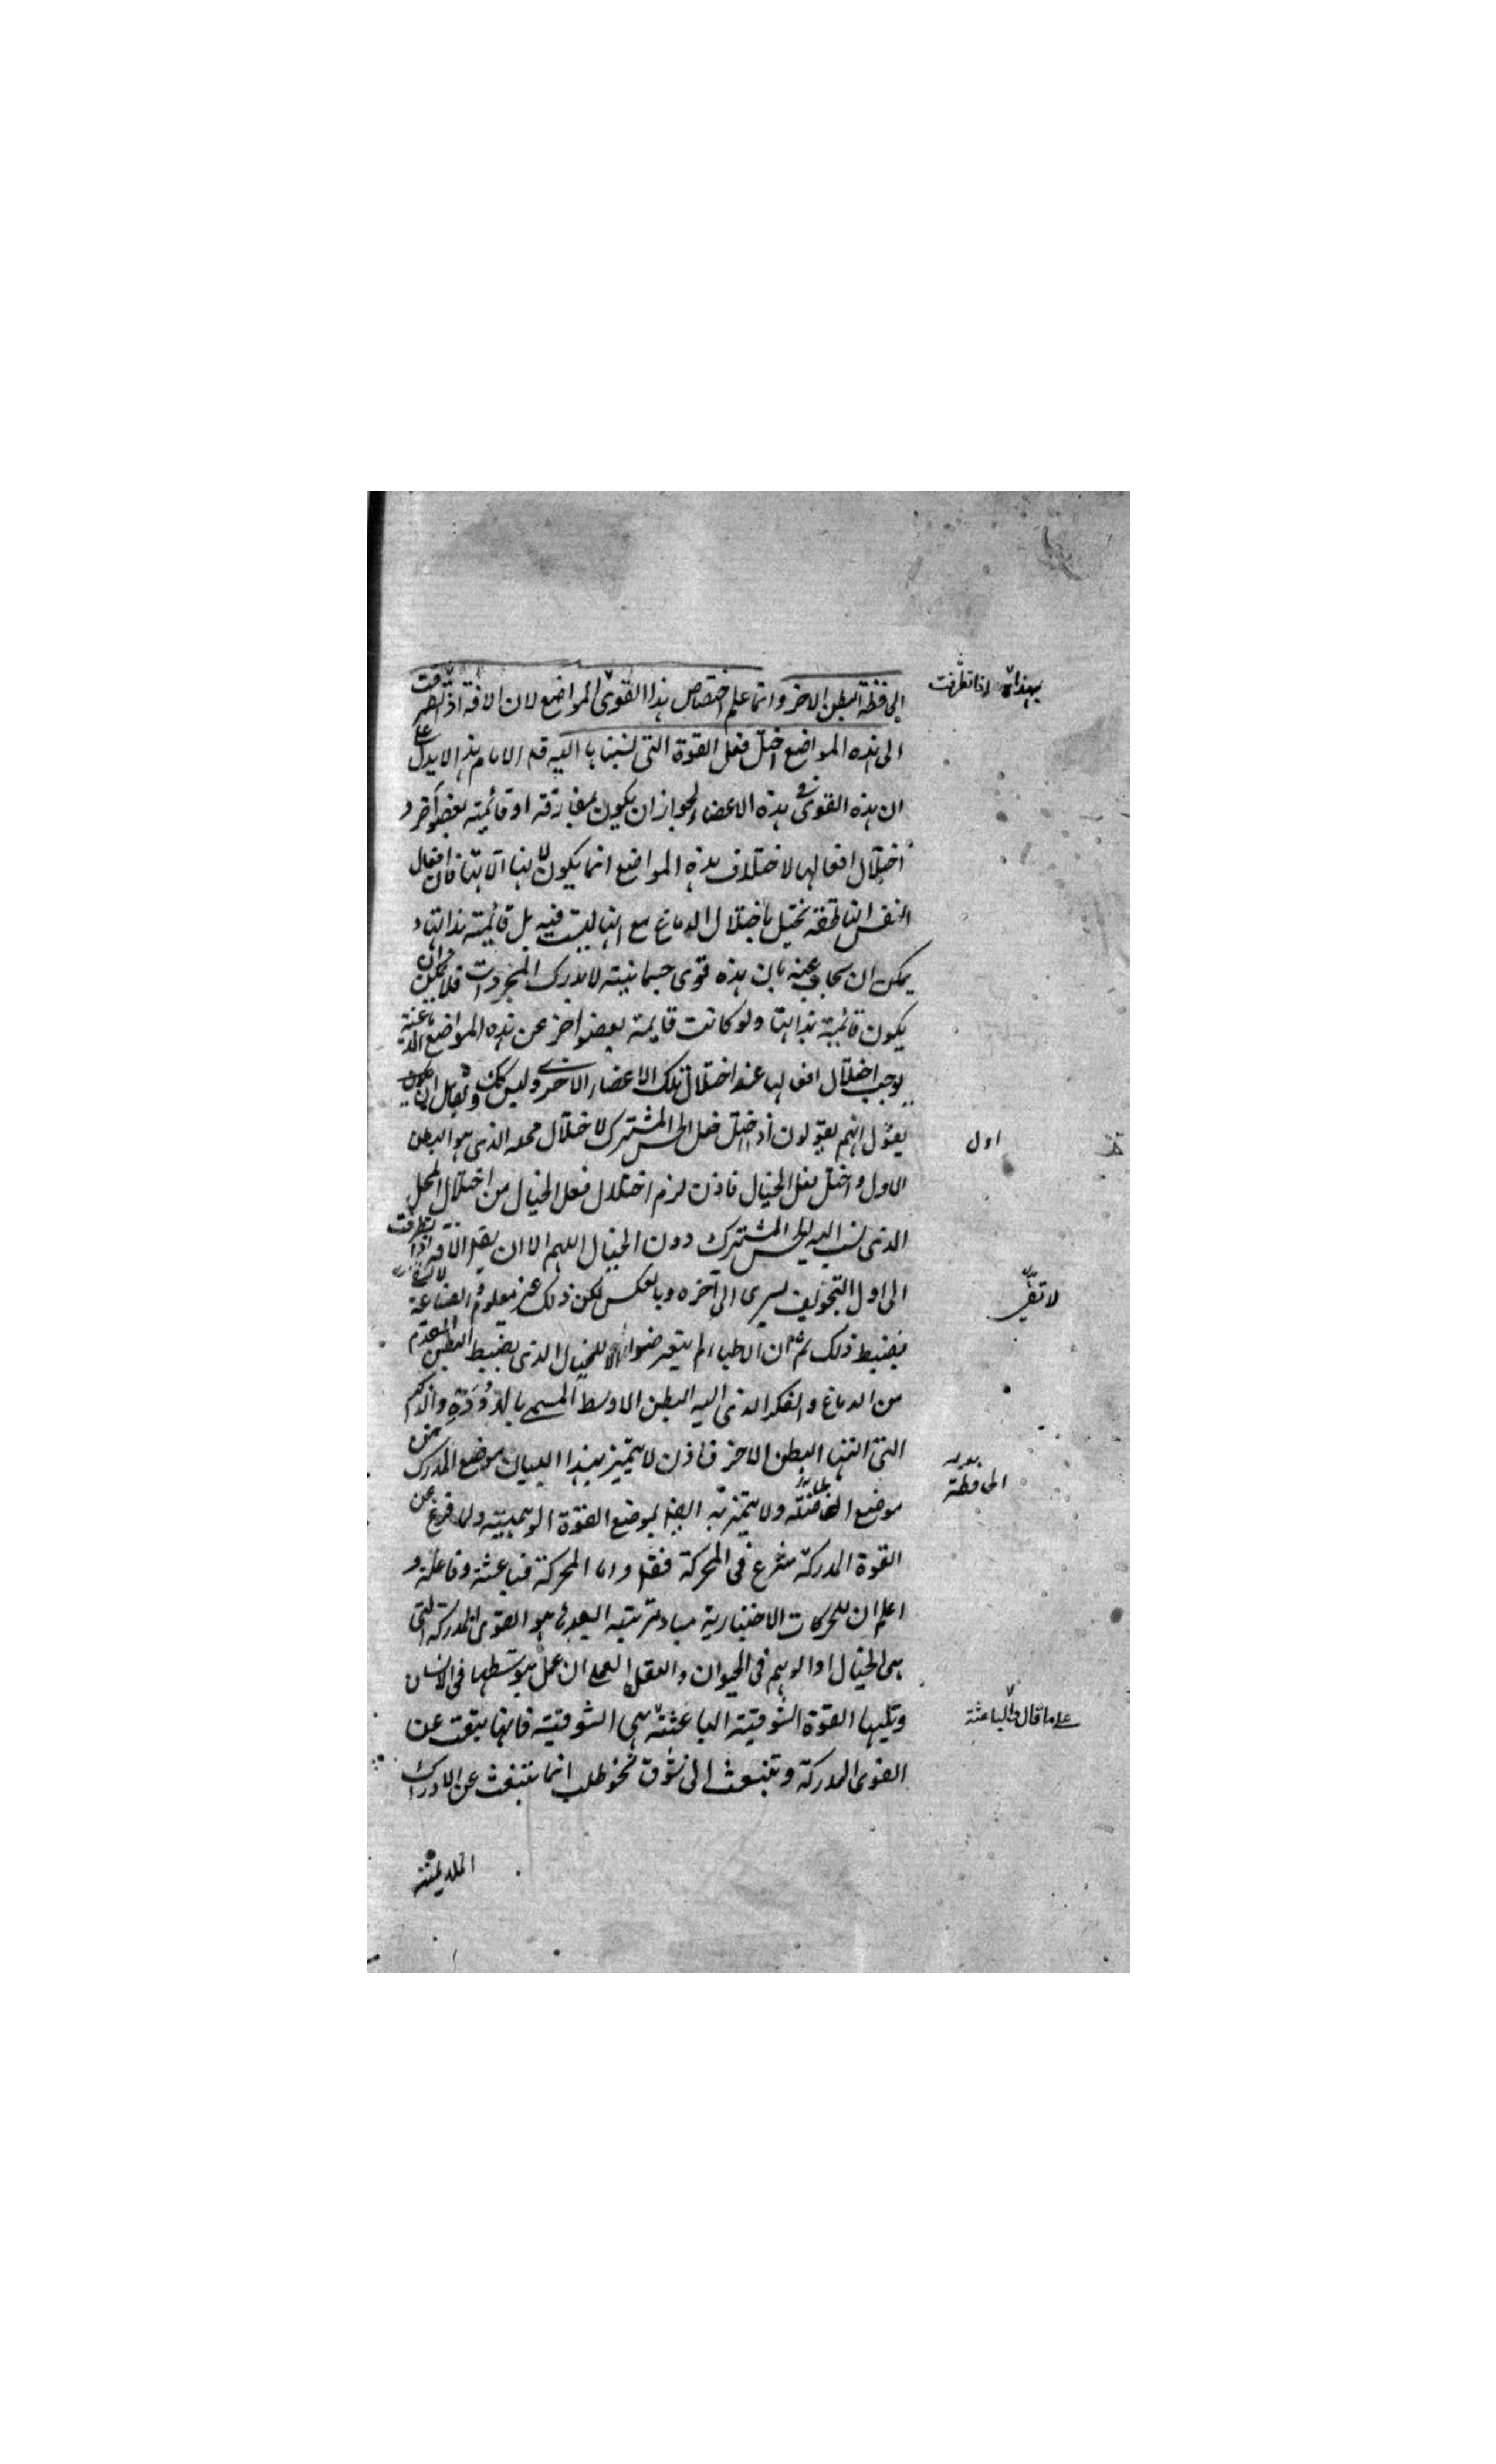 الحافظة البطن الاخر وانما علم اختصاص هذا القوى المواضع لان الافة اذا
الى هذه المواضع اختل فعل القوة التى نسبناها اليه قد الامام هذا لا يدل على
ان هذه القوى فى هذه الاعضاء لجواز ان يكون مفارقة او قائمة بعضو آخر و
اختلال افعالها لاختلاف هذه المواضع انما يكون لانها آلاتها فان افعال
النفس الناطقة تختل باختلال الدماغ مع انها ليست فيه بل قائمة بذاتها و
يمكن ان يجاب عنه بان هذه قوى جسمانية لا يدرك المجردات فلا يمكن ان
يكون قائمة بذاتها ولو كانت قايمة بعضو اخر عن هذه المواضع الدماغية
يوجب اختلال افعالها عند اختلال تلك الاعضاء الاخرى وليس كك ولقائل ان
يقول انهم يقولون اذ اختل فعل الحس المشترك لاختلال محله الذى هو البطن
الاول واختل فعل الخيال فاذن لزم اختلال فعل الخيال من اختلال المحل
الذى نسب اليه الحس المشترك دون الخيال اللهم الا ان يقل الآفة اذا تطرقت
الى اول التجويف يسرى الى آخره وبالعكس لكن ذلك غير معلوم و الصناعة
بضبط ذلك ثم ان الاطباء لم يتعرضوا الا للخيال الذى بضبط البطن المقدم
من الدماغ والفكر الذى اليه البطن الاوسط المسمى بالدودة والذكر
التى البطن الاخر فاذن لا يتميز بهذا البيان موضع المدرك من
موضع الحافظة ولا يتميز به ايضا موضع القوة الوهمية ولما فرغ عن
القوة المدركة شرع فى المحركة فقال واما المحركة فباعثة وفاعلة و
اعلم ان للحركات الاختيارية مبادى مترتبة ابعدها هو القوى المدركة التى
هى الخيال او الوهم فى الحيوان والعقل العملى ان عمل بتوسطها فى الانسان
وتليها القوة الشوقية الباعثة هى الشوقية فانها تنبعث عن
القوى المدركة وتنبعث الى شوق نحو طلب انما تنبعث عن الادراك
الملايمة
بهذا اذا تطرقت
اول
لا تفى
الحافظة
على ما قال والباعثة